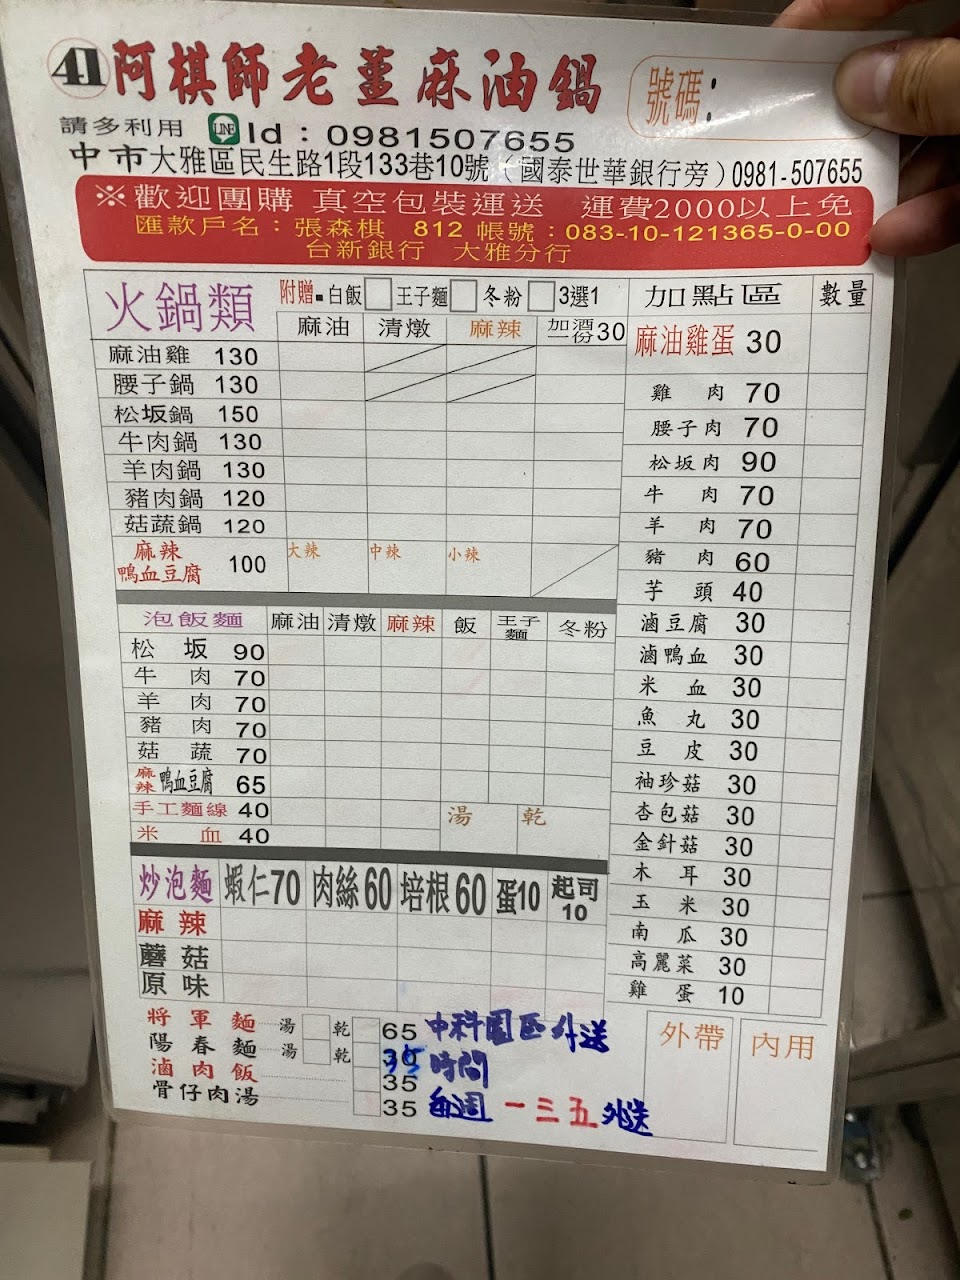 41 阿棋師老薑麻油鍋 號碼：
請多利用 LINE Id：0981507655
中市大雅區民生路1段133巷10號（國泰世華銀行旁）0981-507655
※歡迎團購 真空包裝運送 運費2000以上免
匯款戶名：張森棋 812 帳號：083-10-121365-0-00
台新銀行 大雅分行
火鍋類 附贈■白飯 王子麵 冬粉 3選1
麻油 清燉 麻辣 加酒一份30
麻油雞 130
腰子鍋 130
松坂鍋 150
牛肉鍋 130
羊肉鍋 130
豬肉鍋 120
菇蔬鍋 120
麻辣鴨血豆腐 100 大辣 中辣 小辣
泡飯麵 麻油 清燉 麻辣 飯 王子麵 冬粉
松坂 90
牛肉 70
羊肉 70
豬肉 70
菇蔬 70
麻辣鴨血豆腐 65
手工麵線 40 湯 乾
米血 40
炒泡麵 蝦仁70 肉絲60 培根60 蛋10 起司10
麻辣
蘑菇
原味
將軍麵 湯 乾 65
陽春麵 湯 乾 35
滷肉飯 35
骨仔肉湯 35
中科園區外送
時間
每週一三五外送
加點區 數量
麻油雞蛋 30
雞肉 70
腰子肉 70
松坂肉 90
牛肉 70
羊肉 70
豬肉 60
芋頭 40
滷豆腐 30
滷鴨血 30
米血 30
魚丸 30
豆皮 30
袖珍菇 30
杏包菇 30
金針菇 30
木耳 30
玉米 30
南瓜 30
高麗菜 30
雞蛋 10
外帶 內用